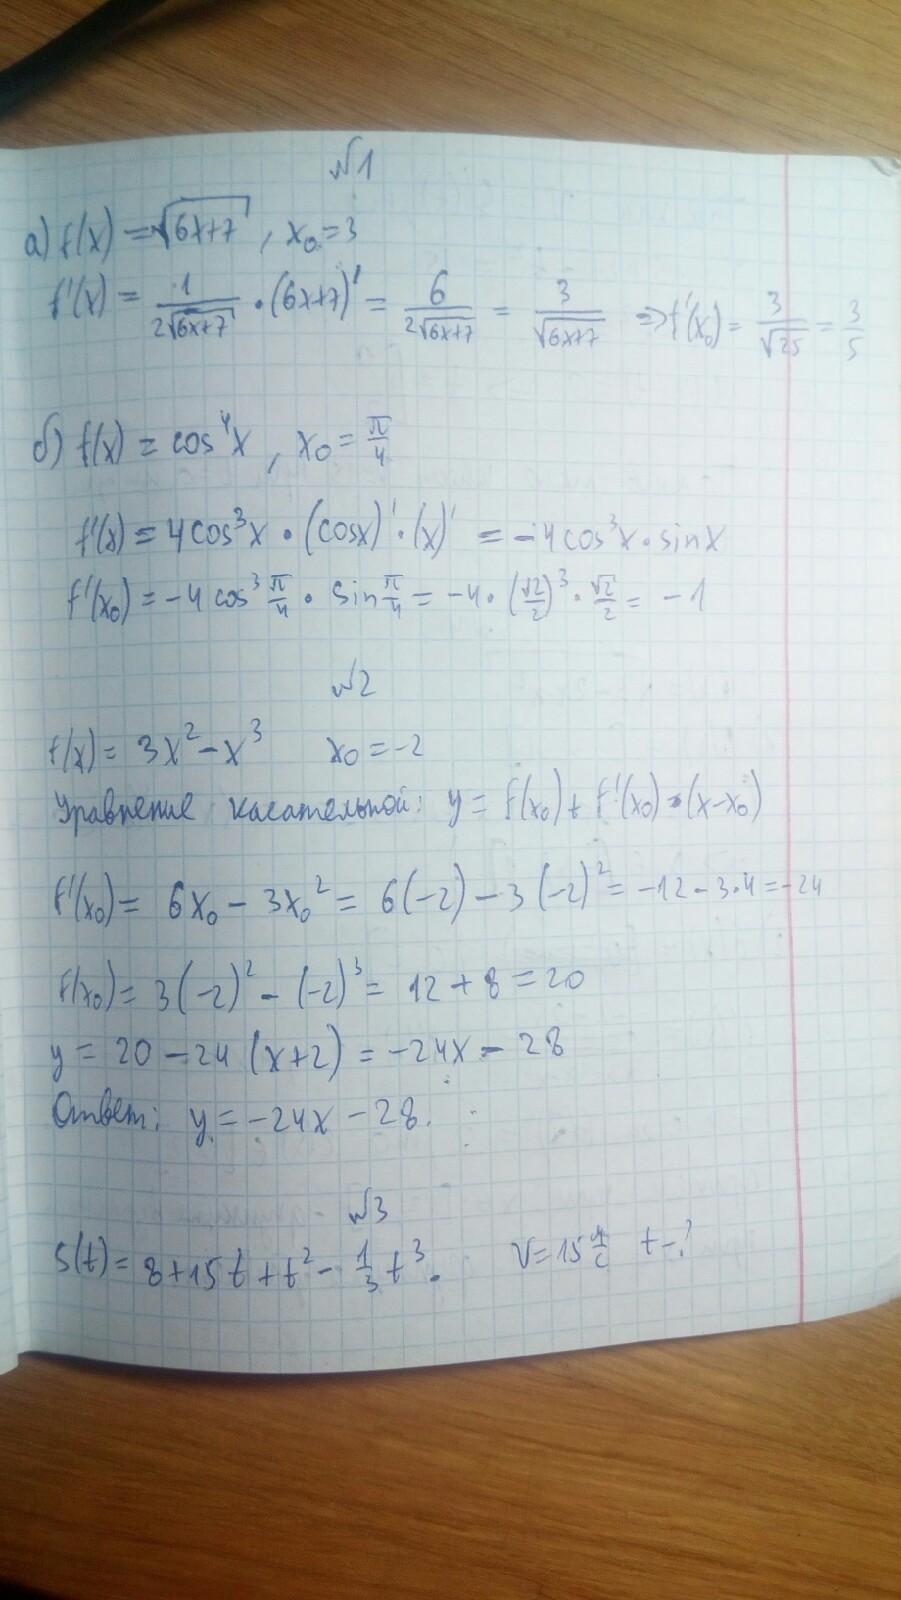 №1
а) f(x) = √(6x+7), x₀ = 3
f'(x) = 1/(2√(6x+7)) • (6x+7)' = 6/(2√(6x+7)) = 3/√(6x+7) ⇒ f'(x₀) = 3/√25 = 3/5
б) f(x) = cos⁴x, x₀ = π/4
f'(x) = 4cos³x • (cosx)' • (x)' = -4cos³x • sinx
f'(x₀) = -4cos³ π/4 • sin π/4 = -4 • (√2/2)³ • √2/2 = -1
№2
f(x) = 3x² - x³ x₀ = -2
Уравнение касательной: y = f(x₀) + f'(x₀) • (x-x₀)
f'(x₀) = 6x₀ - 3x₀² = 6(-2) - 3(-2)² = -12 - 3•4 = -24
f(x₀) = 3(-2)² - (-2)³ = 12 + 8 = 20
y = 20 - 24 (x+2) = -24x - 28
Ответ: y = -24x - 28.
№3
S(t) = 8 + 15t + t² - 1/3 t³. V = 15 м/с t - ?